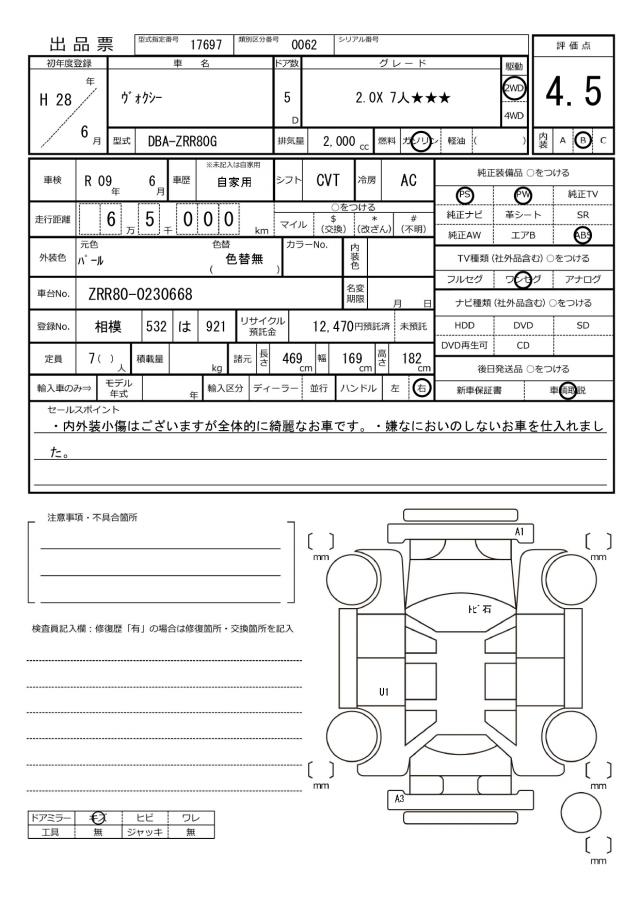 出品票 型式指定番号 17697 類別区分番号 0062 シリアル番号
評価点
4.5
内装 A B C
初年度登録 車 名 ドア数 グレード 駆動
H 28 年 6 月 ヴォクシー 5 D 2.0X 7人★★★ 2WD 4WD
型式 DBA-ZRR80G 排気量 2,000 cc 燃料 ガソリン 軽油 ( )
車検 R 09 年 6 月 車歴 ※未記入は自家用 自家用 シフト CVT 冷房 AC
走行距離 6 5 0 0 0 万 千 km ○をつける
マイル $ (交換) * (改ざん) # (不明)
外装色 元色 パール 色替 色替無 ( ) カラーNo. 内装色
車台No. ZRR80-0230668 名変期限 月 日
登録No. 相模 532 は 921 リサイクル預託金 12,470円預託済 未預託
定員 7( ) 人 積載量 kg 諸元 長さ 469 cm 幅 169 cm 高さ 182 cm
輸入車のみ⇒ モデル年式 年 輸入区分 ディーラー 並行 ハンドル 左 右
純正装備品 ○をつける
PS PW 純正TV
純正ナビ 革シート SR
純正AW エアB ABS
TV種類 (社外品含む) ○をつける
フルセグ ワンセグ アナログ
ナビ種類 (社外品含む) ○をつける
HDD DVD SD
DVD再生可 CD
後日発送品 ○をつける
新車保証書 車輌取説
セールスポイント
・内外装小傷はございますが全体的に綺麗なお車です。・嫌なにおいのしないお車を仕入れまし
た。
注意事項・不具合箇所
検査員記入欄：修復歴「有」の場合は修復箇所・交換箇所を記入
ドアミラー キズ ヒビ ワレ
工具 無 ジャッキ 無
A1
mm mm
トビ石
U1
mm mm
A3
mm